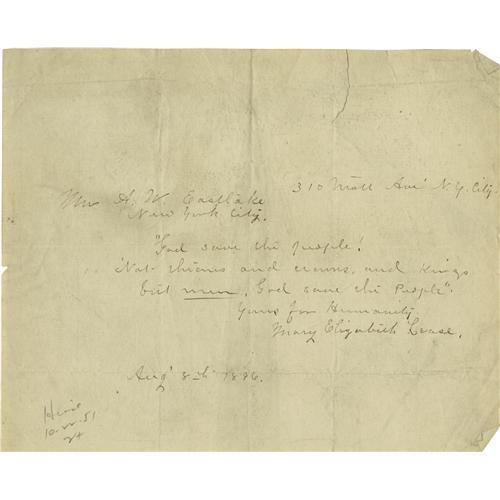 310 Mott Ave' N.Y. City.
Mrs A. W. Eastlake
New York City.
"God save the people!
Not thrones and crowns, and Kings
but men, God save the People".
Yours for Humanity
Mary Elizabeth Lease.
Aug' 8th 1896.
10.22.51